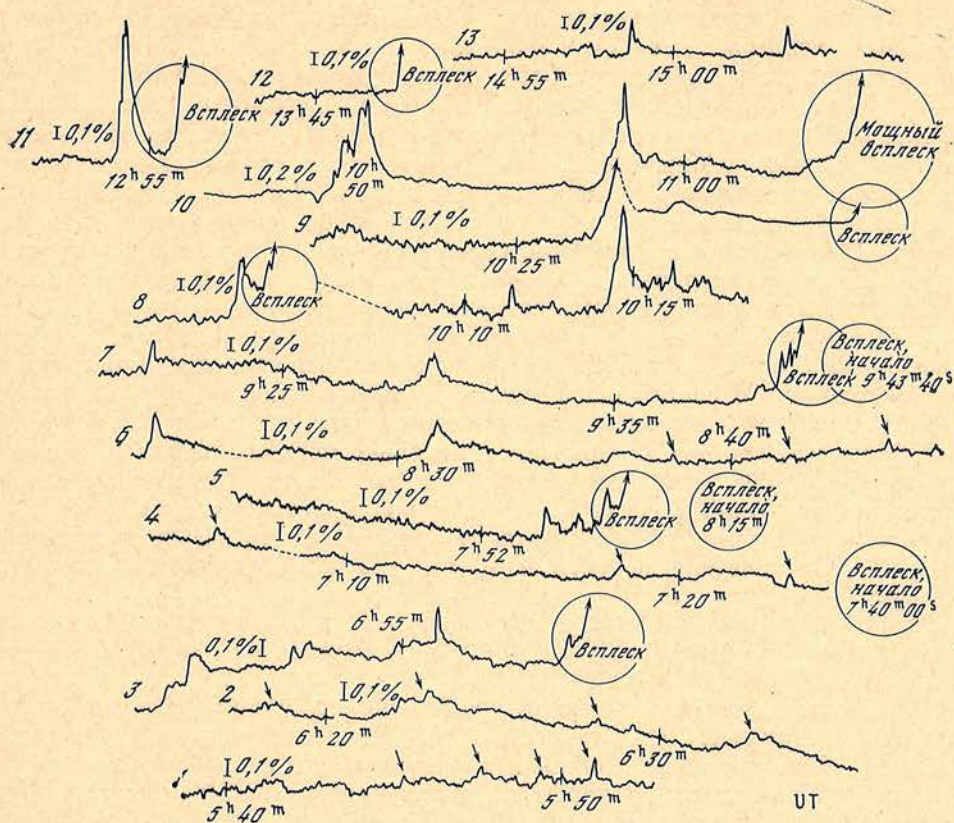 13
I 0,1%
14ʰ 55ᵐ
15ʰ 00ᵐ
12
I 0,1%
Всплеск
13ʰ 45ᵐ
11
I 0,1%
Всплеск
12ʰ 55ᵐ
10
I 0,2%
10ʰ
50ᵐ
11ʰ 00ᵐ
Мощный
всплеск
9
I 0,1%
10ʰ 25ᵐ
Всплеск
8
I 0,1%
Всплеск
10ʰ 10ᵐ
10ʰ 15ᵐ
7
I 0,1%
9ʰ 25ᵐ
9ʰ 35ᵐ
Всплеск
Всплеск,
начало
9ʰ 43ᵐ 40ˢ
6
I 0,1%
8ʰ 30ᵐ
8ʰ 40ᵐ
5
I 0,1%
7ʰ 52ᵐ
Всплеск
Всплеск,
начало
8ʰ 15ᵐ
4
I 0,1%
7ʰ 10ᵐ
7ʰ 20ᵐ
Всплеск,
начало
7ʰ 40ᵐ 00ˢ
3
0,1% I
6ʰ 55ᵐ
Всплеск
2
I 0,1%
6ʰ 20ᵐ
6ʰ 30ᵐ
1
I 0,1%
5ʰ 40ᵐ
5ʰ 50ᵐ
UT